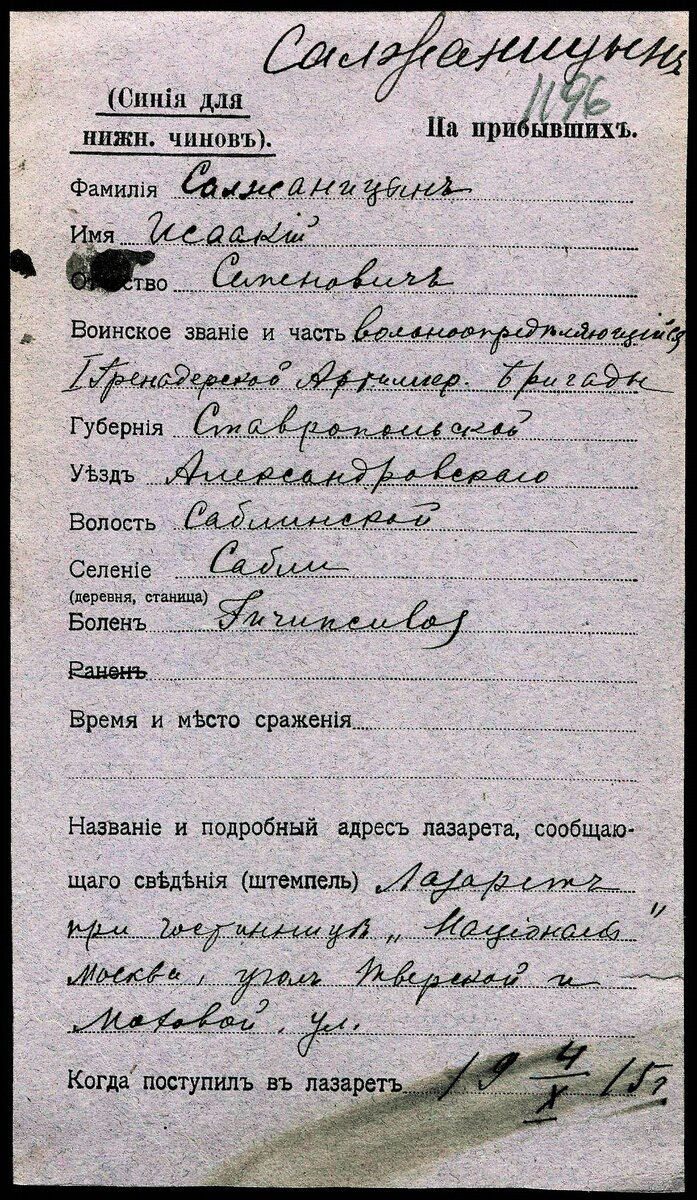 Салжаницынъ
1196
(Синія для
нижн. чиновъ).
На прибывшихъ.
Фамилія Салжаницынъ
Имя Исаакій
Отчество Семеновичъ
Воинское званіе и часть вольноопредѣляющійся
I Гренадерской Артиллер. бригады
Губернія Ставропольской
Уѣздъ Александровскаго
Волость Саблинской
Селеніе Сабли
(деревня, станица)
Боленъ
Раненъ
Время и мѣсто сраженія
Названіе и подробный адресъ лазарета, сообщаю-
щаго свѣдѣнія (штемпель) Лазаретъ
при гостинницѣ „Націоналъ”
Москва, уголъ Тверской и
Моховой ул.
Когда поступилъ въ лазаретъ 19 4/X 15 г